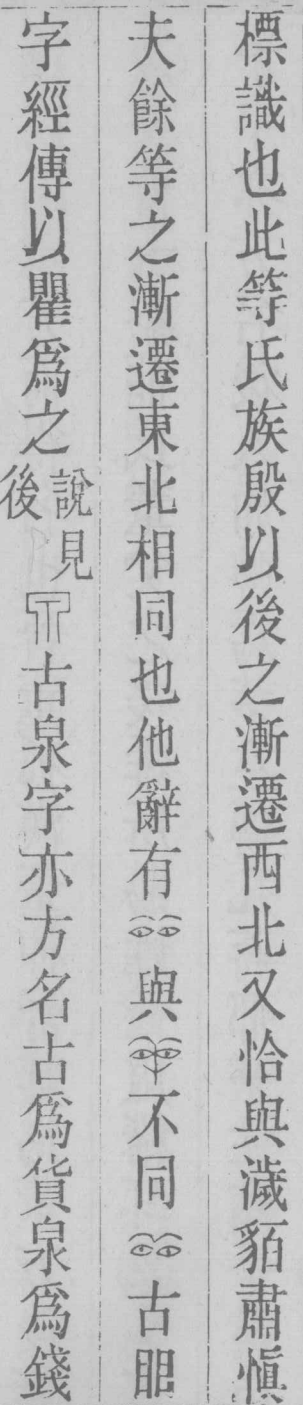 標識也此等氏族殷以後之漸遷西北又恰與濊貊肅慎
夫餘等之漸遷東北相同也他辭有與不同古䀠
字經傳以瞿爲之說見後古泉字亦方名古爲貨泉爲錢